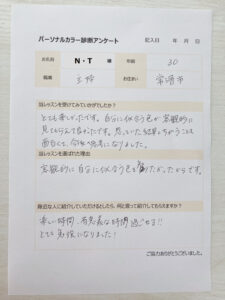 パーソナルカラー診断アンケート
記入日 年 月 日
お名前 N・T 様 年齢 30
職業 主婦 お住まい 常滑市
当レッスンを受けてみていかがでしたか？
とても楽しかったです。自分に似合う色が客観的に
見てもらえて良かったです。思っていた結果とちがうことも
面白くて、今後の参考になりました。
当レッスンを選ばれた理由
客観的に自分に似合う色を知りたかったからです。
最近な人に紹介していただけるとしたら、何と言って紹介してもらえますか？
楽しい時間、有意義な時間過ごせます!!
とても勉強になりました！
ご協力ありがとうございました。